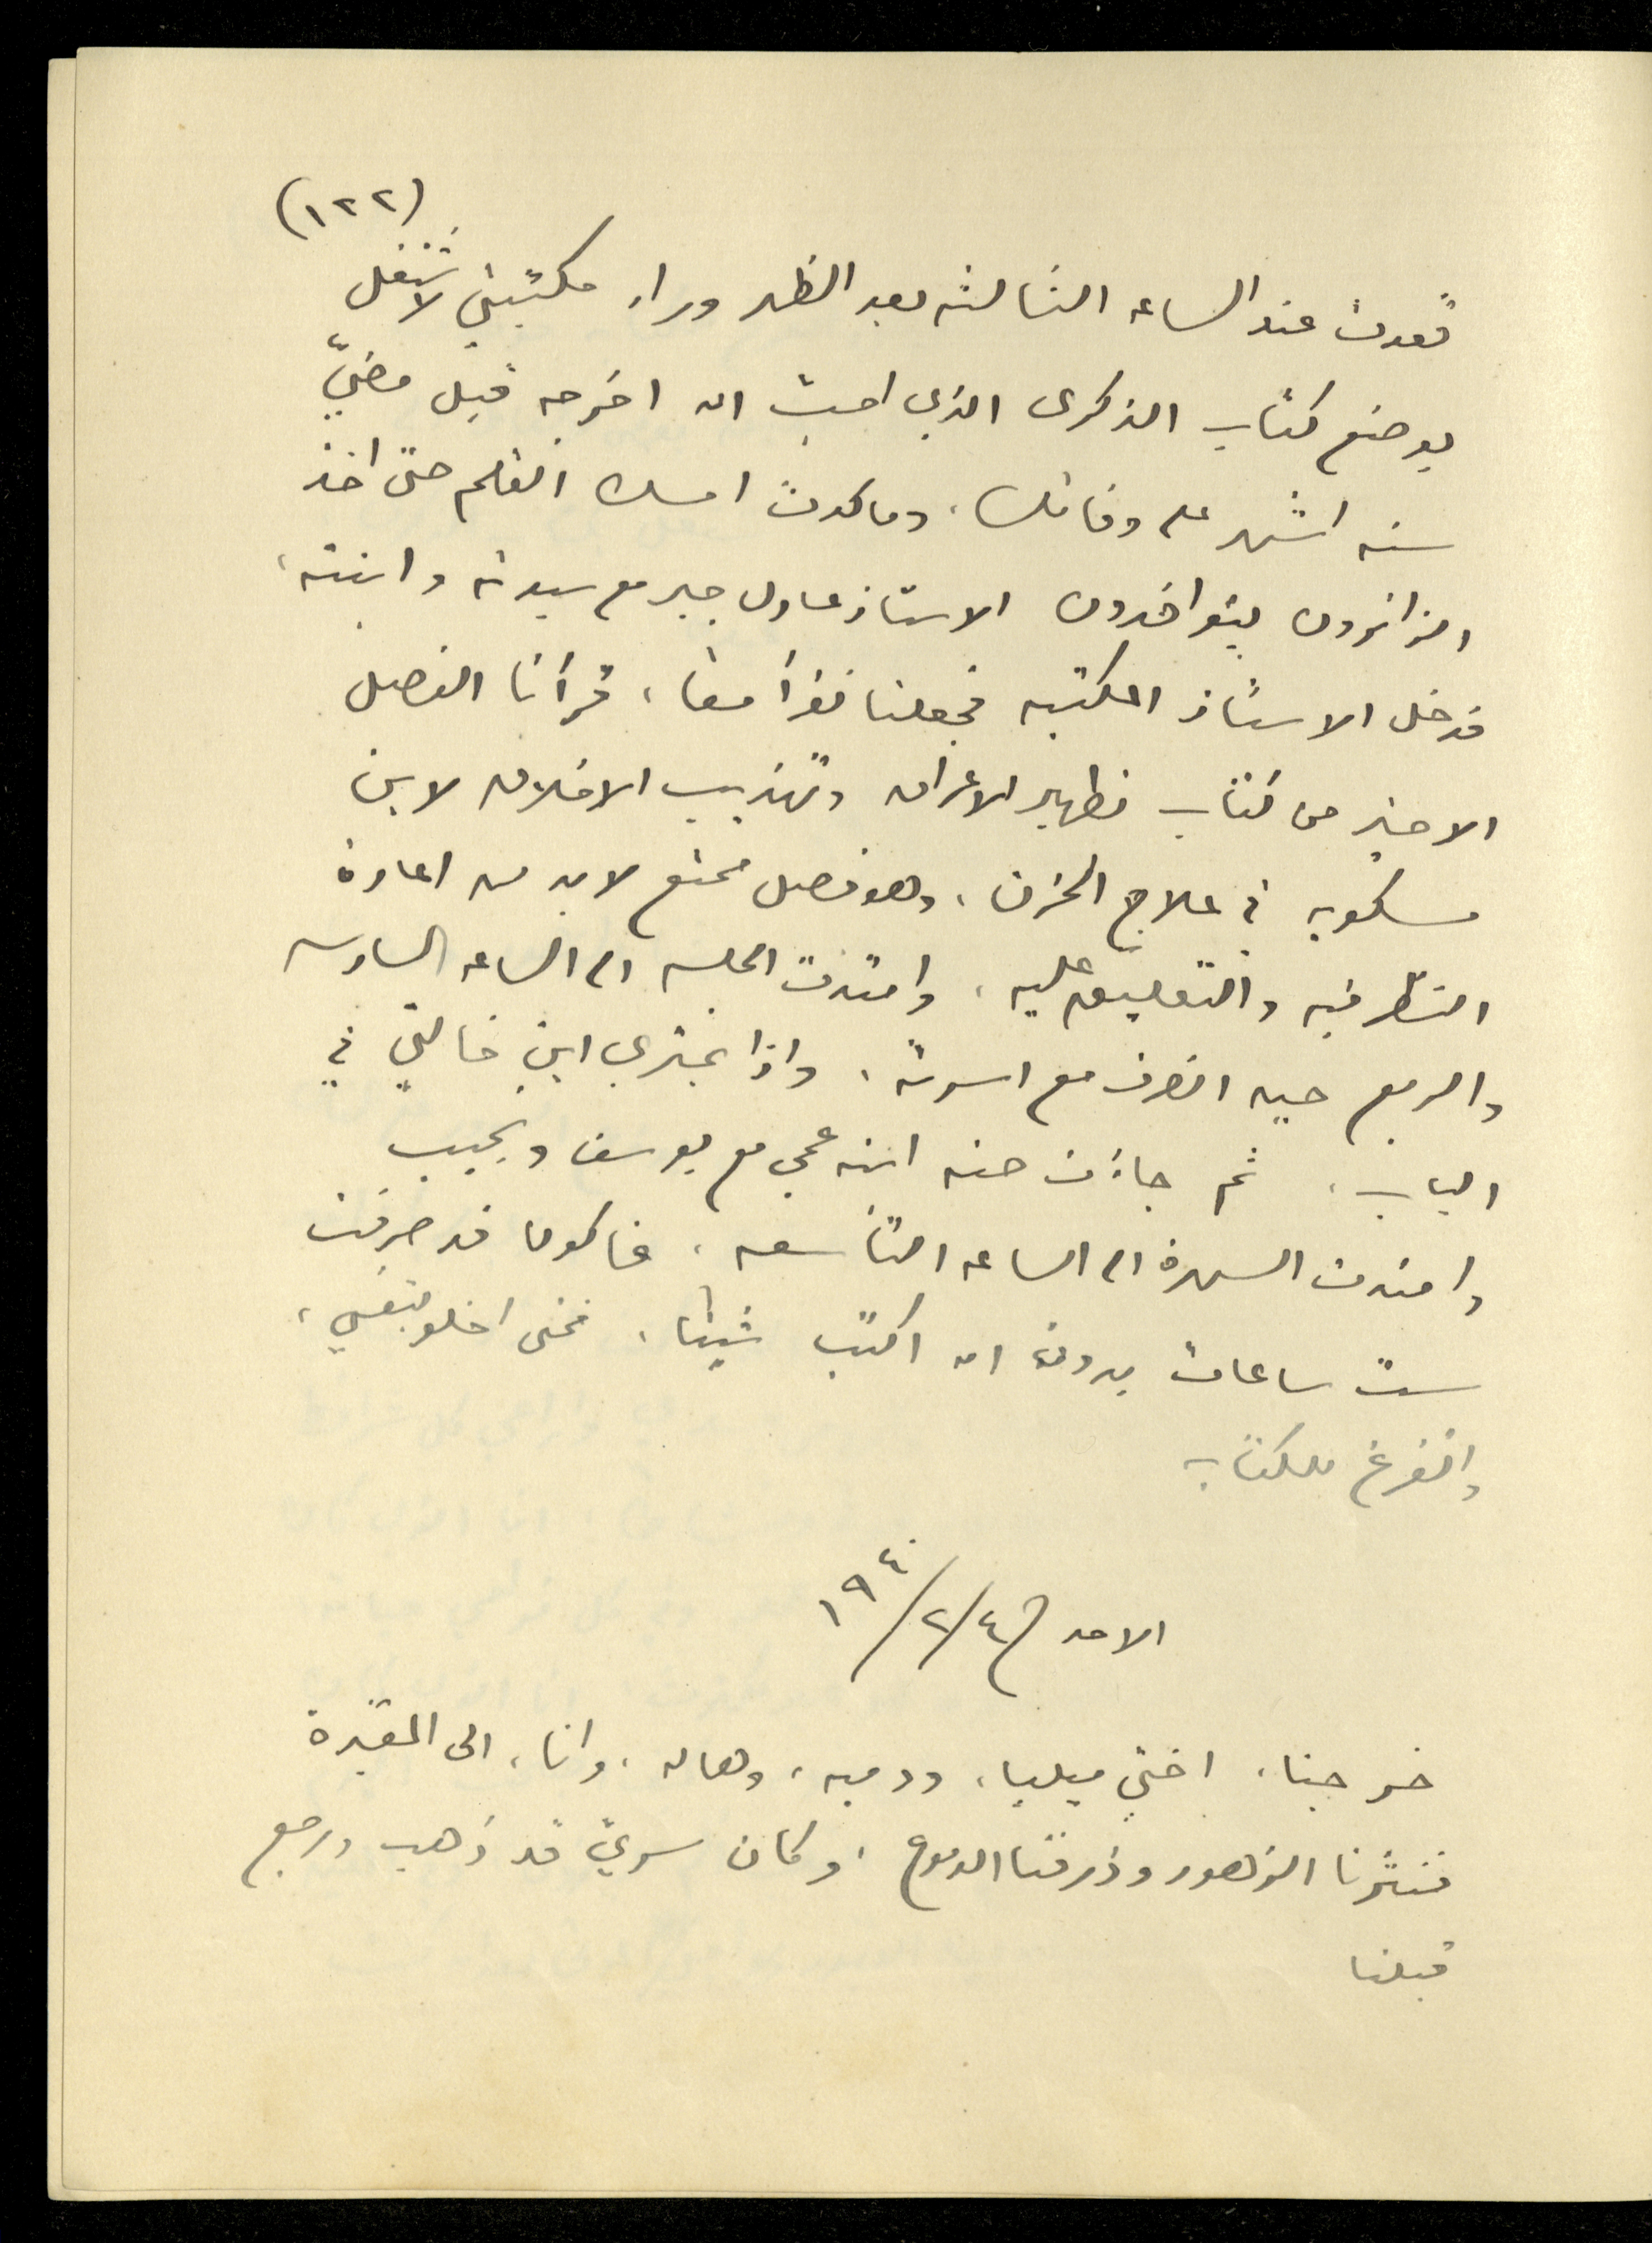 (١٢٢)
قعدت عند الساعه الثالثه بعد الظهر وراء مكتبتي لاشتغل
بوضع كتاب الذكرى الذي احب ان اخرجه قبل مضيّ
سته اشهر على وفاتك، وما كدت امسك القلم حتى اخذ
الزائرون يتوافدون الاستاذ عادل جبر مع سيدته وابنته،
فدخل الاستاذ المكتبه فجعلنا نقرأ معا، قرأنا الفصل
الاخير من كتاب تطهير الاعراق وتهذيب الاخلاق لابن
مسكويه في علاج الحزن، وهو فصل ممتع لابد من اعادة
النظر فيه والتعليق عليه، وامتدت الجلسه الى الساعه السادسه
والربع حين انصرف مع اسرته، واذا بمتري ابن خالتي في
الباب، ثم جاءت حنه ابنه عمي مع يوسف ونجيب
وامتدت السهرة الى الساعه التاسعه، فاكون قد صرفت
ست ساعات بدون ان اكتب شيئا، فمتى اخلو بنفسي،
واتفرغ للكتاب
الاحد ٤/٢/١٩٤٠
خرجنا، اختي ميليا، ودميه، وهاله، وانا، الى المقبرة
فنثرنا الزهور وذرفنا الدموع، وكان سريّ قد ذهب ورجع
قبلنا